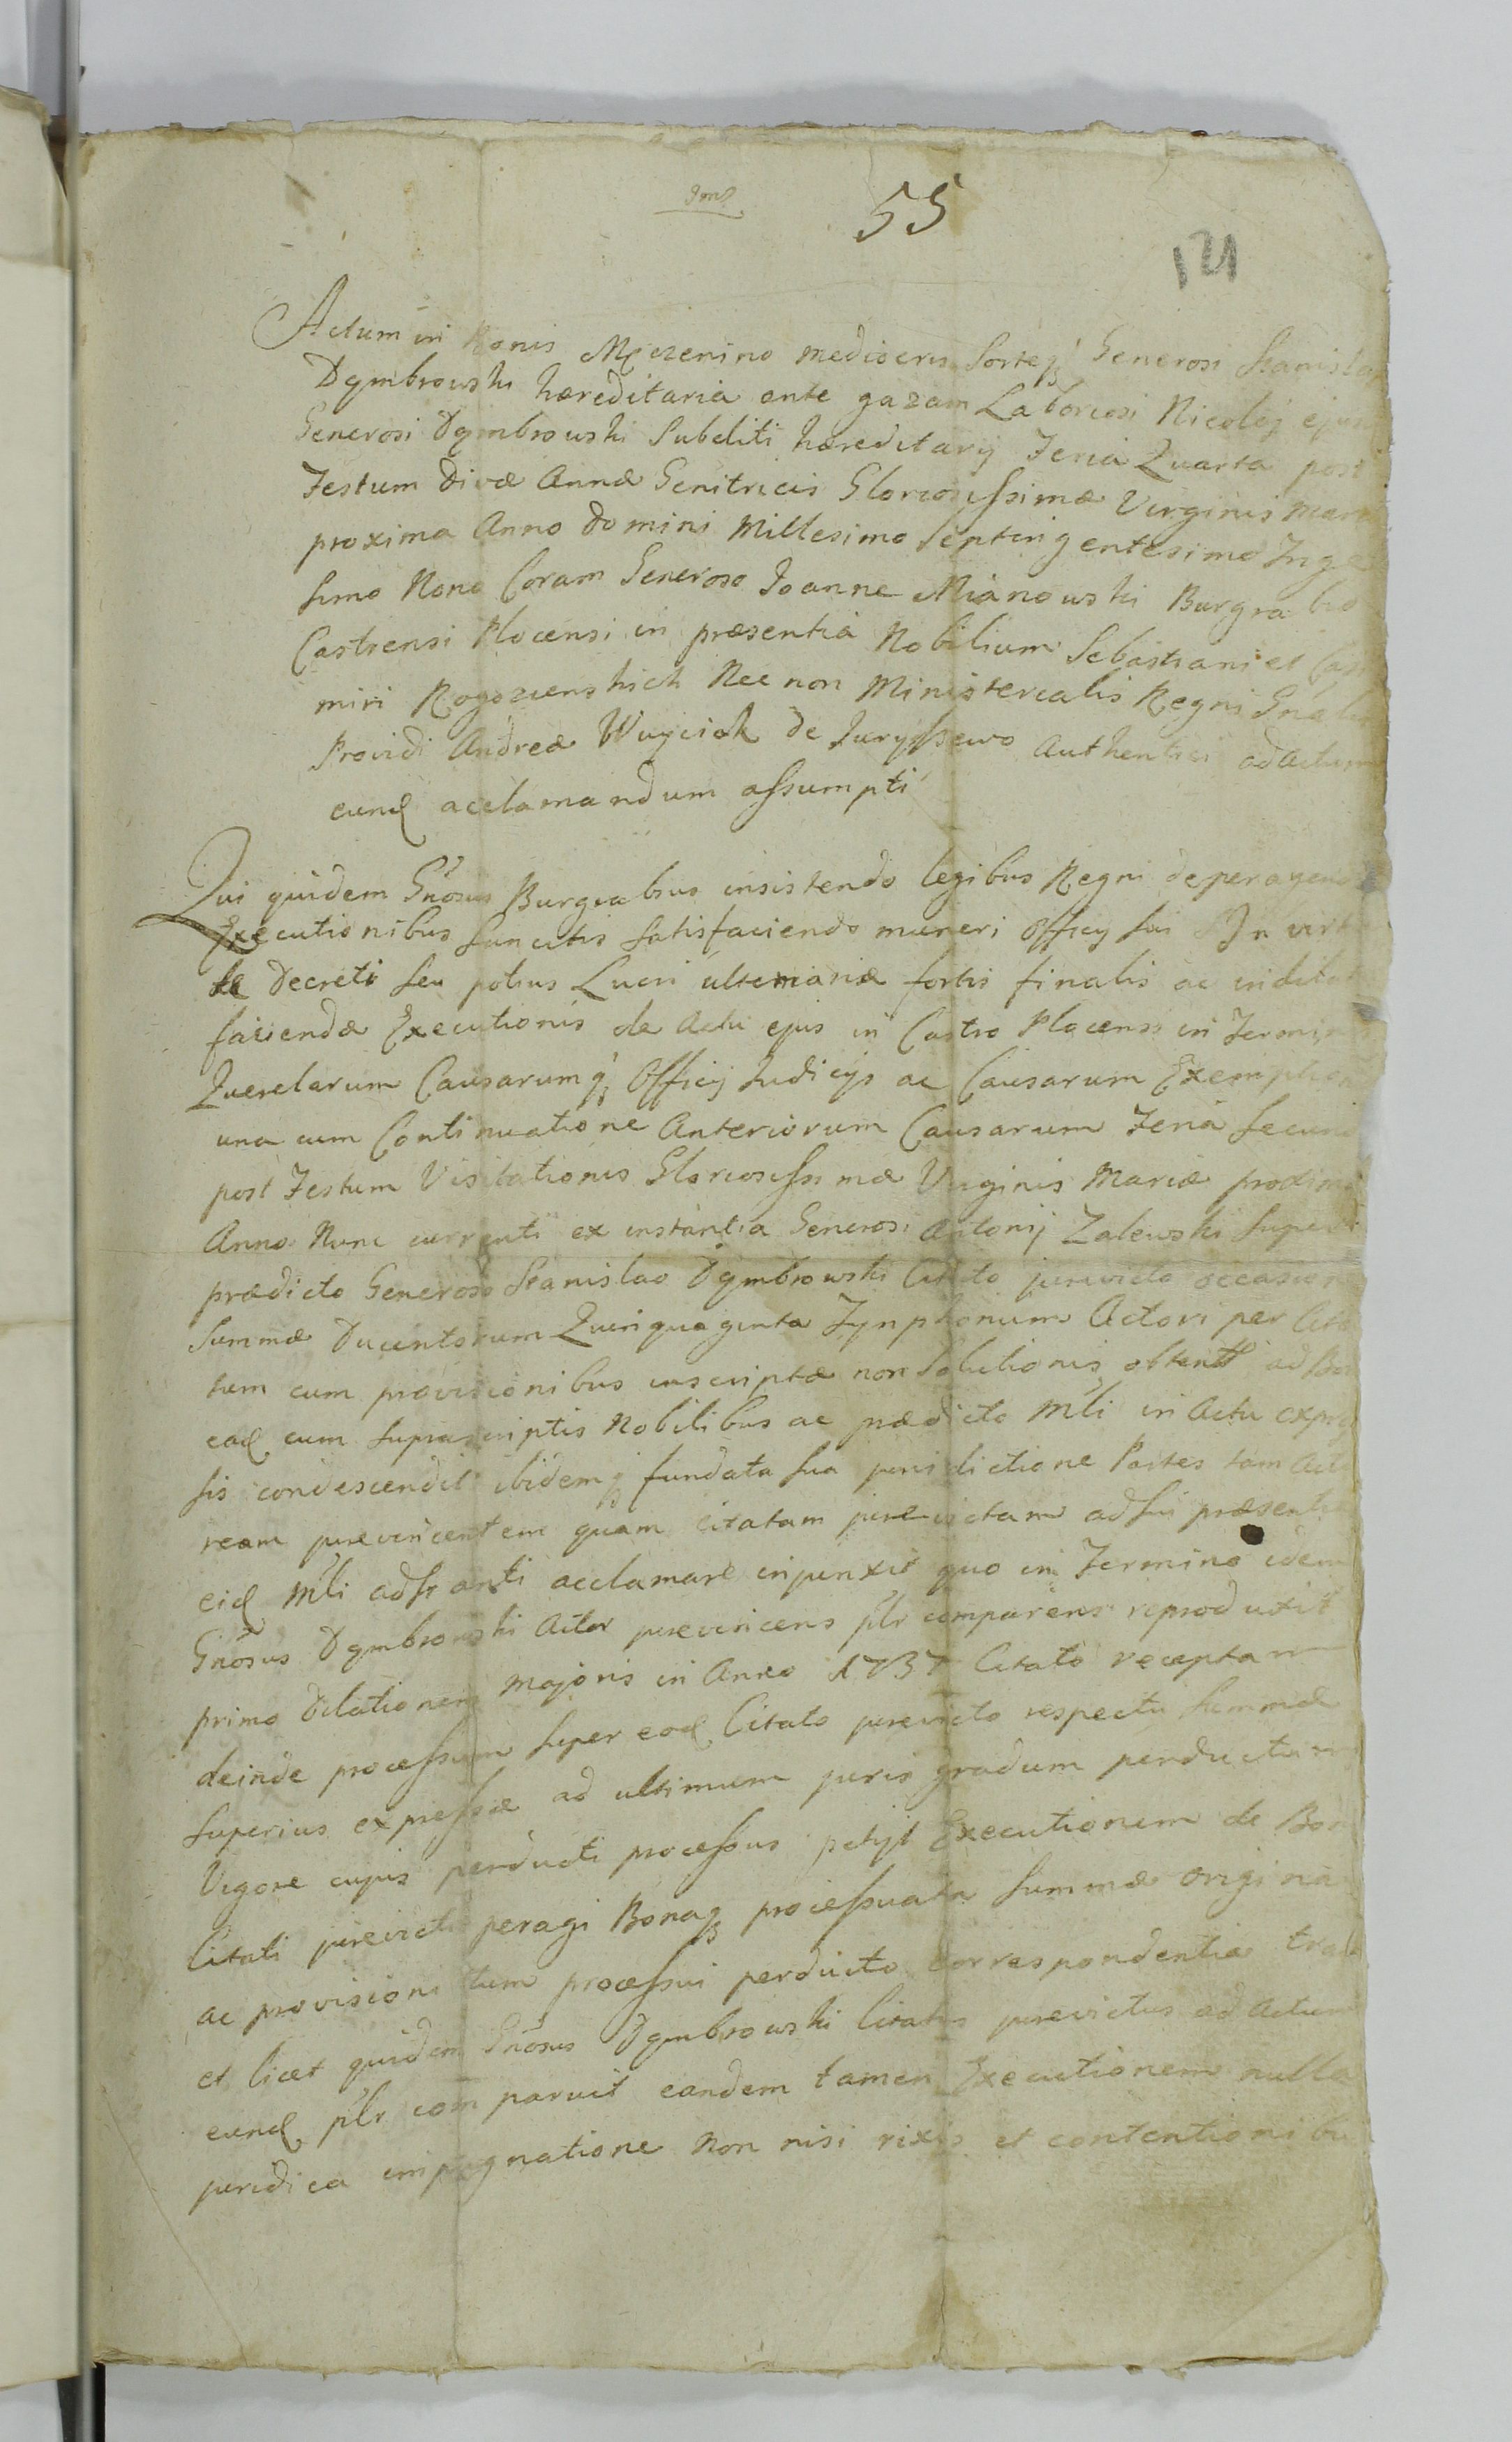 55
121
Actum in Bonis Mczenino mediocris Sorteq; Generosi Stanislai
Dąmbrowski hæreditaria ante gazam Laboriosi Nicolaj ejusd
Generosi Dąmbrowski Subditi hæreditarij Feria Quarta post
Festum Divæ Annæ Genitricis Gloriosissimæ Virginis Mari
proxima Anno Domini Millesimo Septingentesimo Trige
simo Nono Coram Generoso Joanne Mianowski Burgrabio
Castrensi Plocensi in præsentia Nobilium Sebastiani et Casi
miri Rogozienskich Nec non Ministerialis Regni Gnalis
Providi Andreæ Wuyciak de Juryszewo Authentici ad Actum
eund acclamandum assumpti
Qui quidem Gnosus Burgrabius insistendo legibus Regni de peragend
Executionibus Sancitis Satisfaciendo muneri Officij sui In virtu
te Decreti seu potius Lucri ultimariæ sortis finalis ac indilat
faciendæ Executionis de Actu ejus in Castro Plocensi in Termin
Querelarum Causarumq; Officij Judicijs ac Causarum Exemption
una cum Continuatione Anteriorum Causarum Feria Secund
post Festum Visitationis Gloriosissimæ Virginis Mariæ proxim
Anno Nunc currenti ex instantia Generosi Antonij Zalewski Super
prædicto Generoso Stanislao Dąmbrowski Citato jurevicto occasion
Summæ Ducentorum Quinquaginta Tynphonum Actori per Cita
tum cum provisionibus inscriptæ non Solutionis obtent ad Bon
ead cum suprascriptis Nobilibus ac prædicto Mli in Actu expres
sis condescendit ibidemq; fundata sua jurisdictione Partes tam Acto
ream jurevincentem quam citatam jurevictam ad sui præsent
eid Mli adstanti acclamare injunxit quo in Termino idem
Gnosus Dąmbrowski Actor jurevincens plr comparens reproduxit
primo Dilationem Majoris in Anno 1737 Citato receptam
deinde processum super eod Citato jurevicto respectu Summæ
superius expressæ ad ultimum juris gradum perductum
Vigore cujus perducti processus petijt Executionem de Bon
Citati jurevicti peragi Bonaq; processuata Summæ origina
ac provisioni tum processui perducto correspondentia trad
et licet quidem Gnosus Dąmbrowski Citatus jurevictus ad Actum
eund plr comparuit eandem tamen Executionem nulla
juridica impugnatione Non nisi rixis et contentionibu